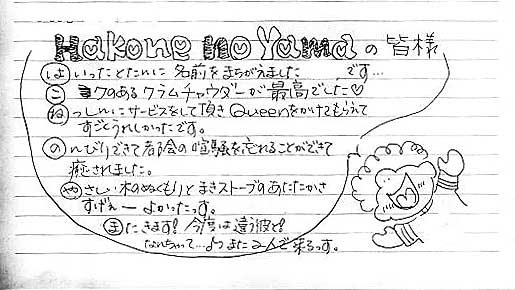 Hakone no Yama の皆様
はいったとたんに 名前をまちがえました です…
こ コクのあるクラムチャウダーが最高でした♡
ねっしんにサービスをして頂きQueenをかけてもらえて
すごくうれしかったです。
のんびりできて都会の喧騒を忘れることができて
癒されました。
やさしい木のぬくもりとまきストーブのあたたかさ
すげぇー よかったっす。
またきます! 今度は違う彼と!
なんちゃって… またみんで来るっす。